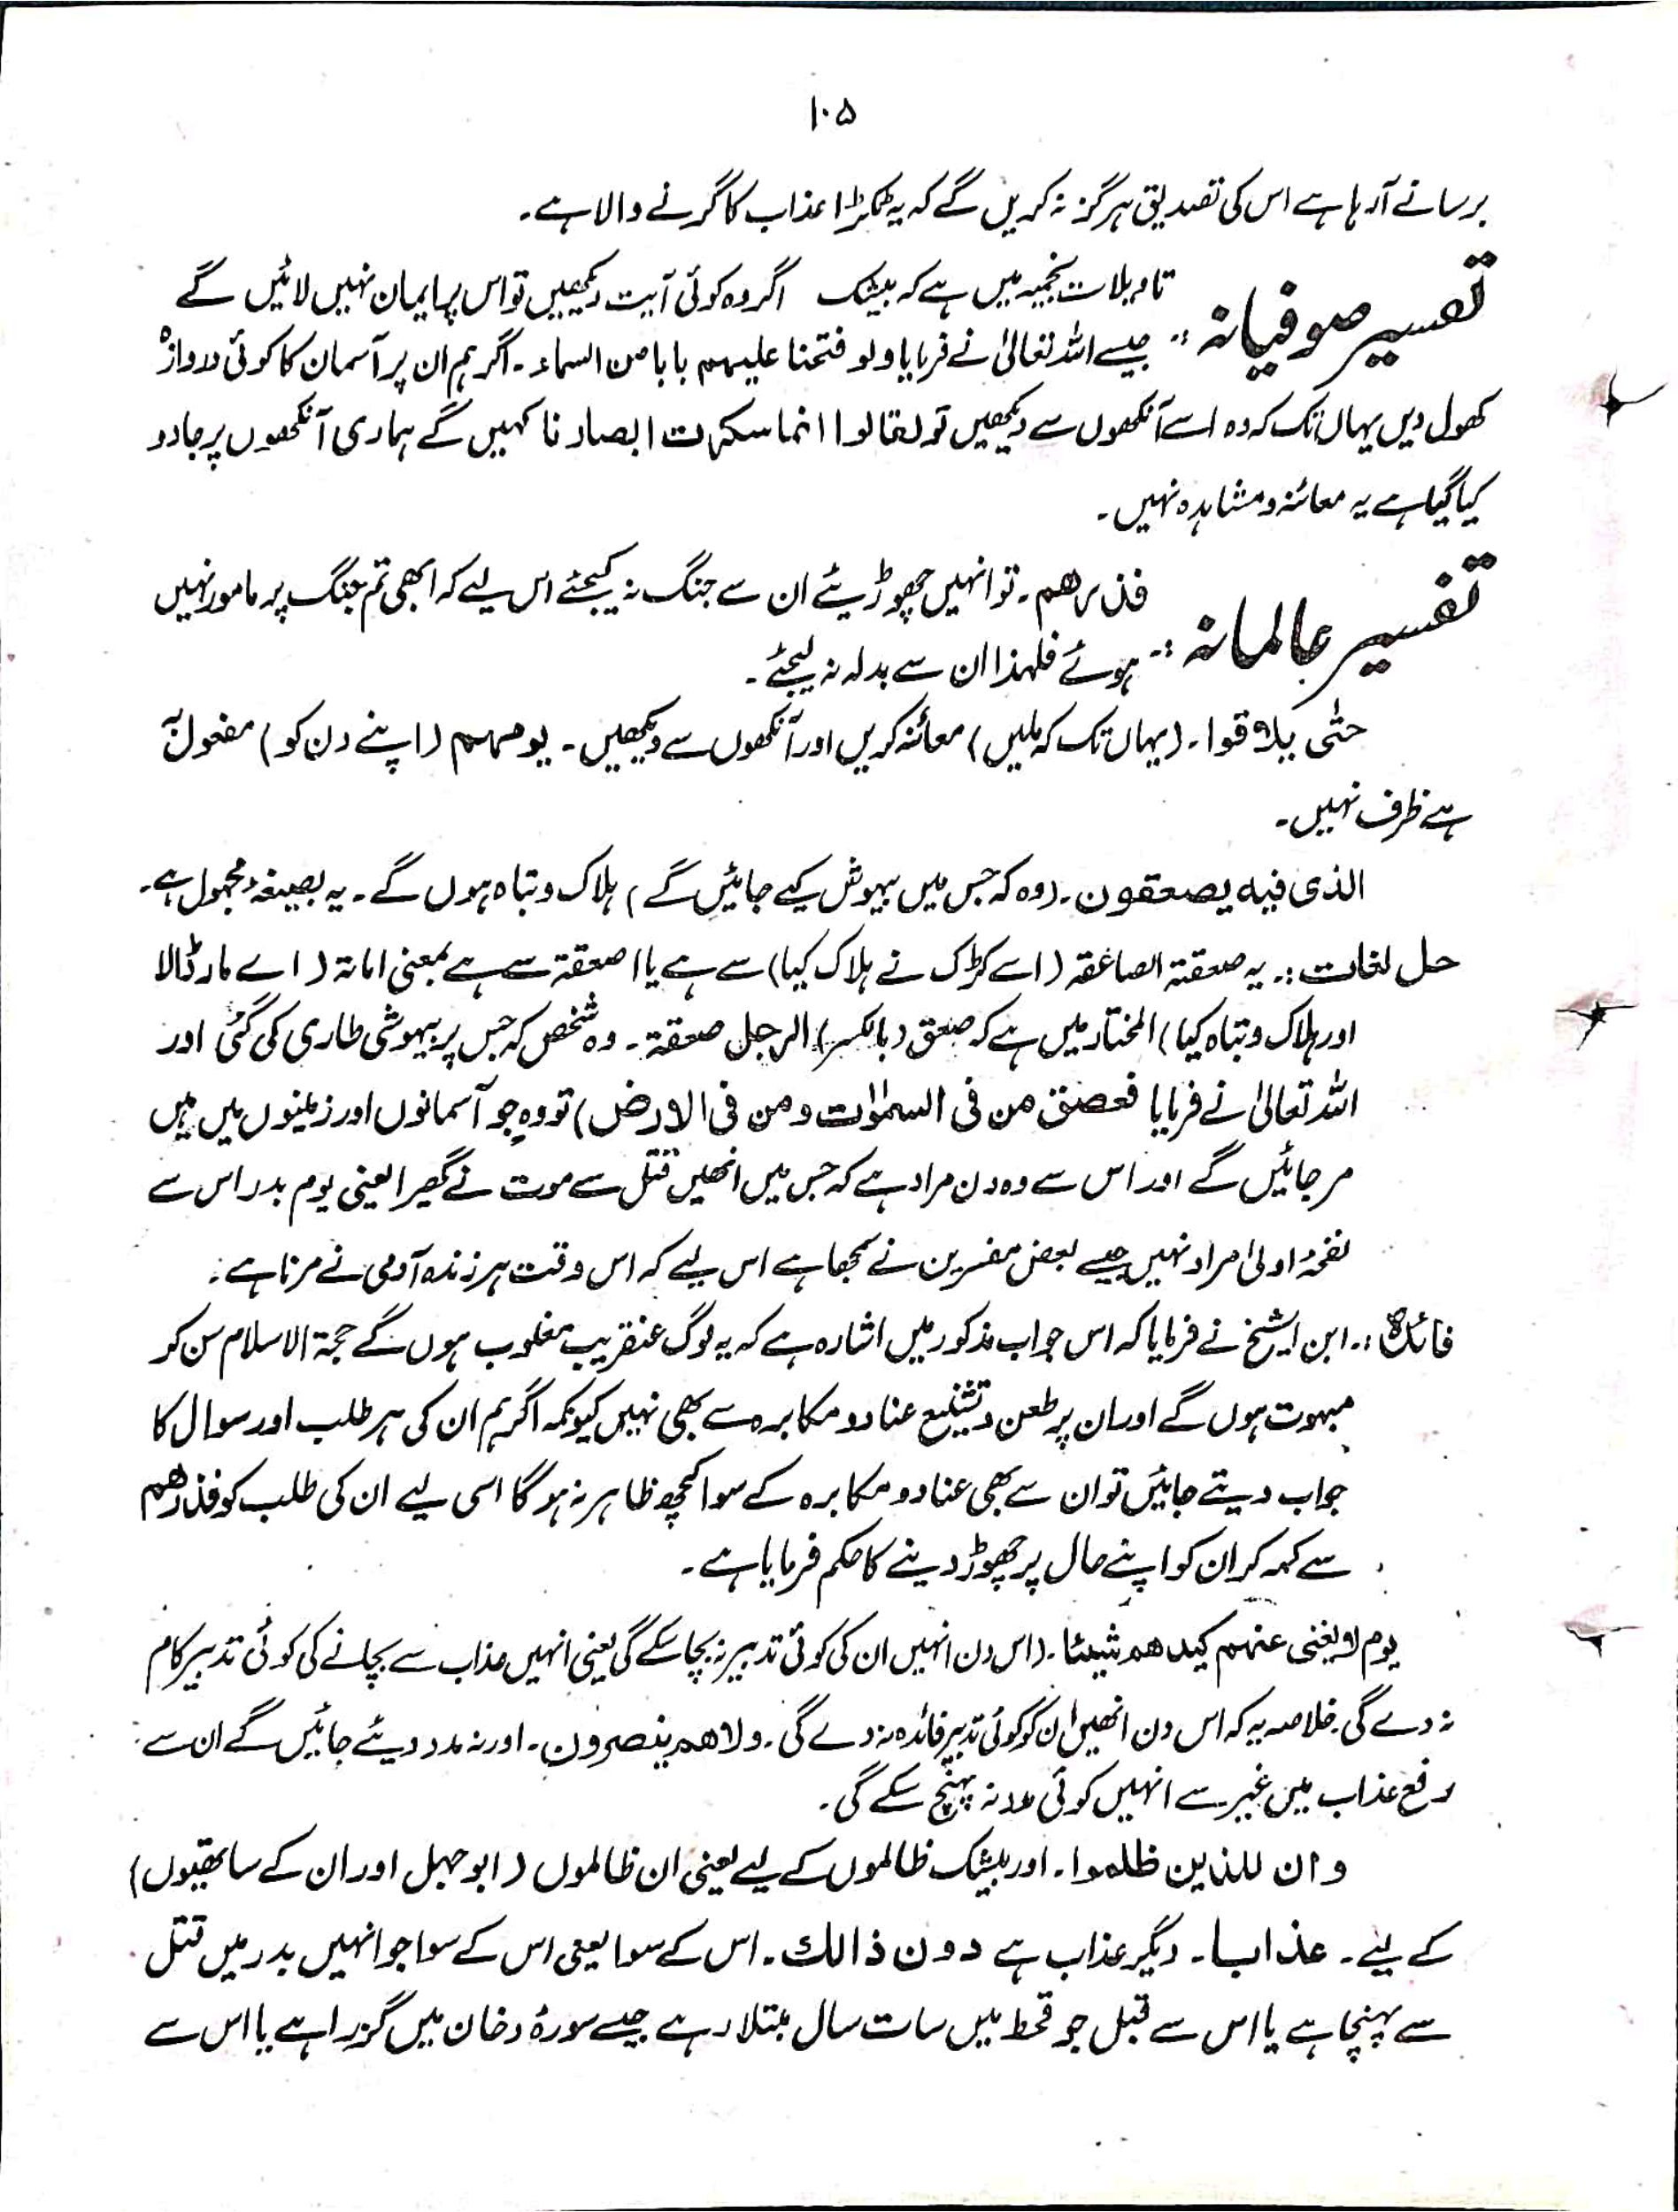 ۱۰۵
برسانے آ رہا ہے اس کی تصدیق ہرگز نہ کریں گے کہ یہ ٹکڑا عذاب کا گرنے والا ہے۔
تفسیر صوفیانہ :- تاویلات نجمیہ میں ہے کہ بیشک اگر وہ کوئی آیت دیکھیں تو اس پر ایمان نہیں لائیں گے
جیسے اللہ تعالیٰ نے فرمایا ولو فتحنا علیہم بابا من السماء۔ اگر ہم ان پر آسمان کا کوئی دروازہ
کھول دیں یہاں تک کہ وہ اسے آنکھوں سے دیکھیں تو لقالوا انما سکرت ابصارنا کہیں گے ہماری آنکھوں پر جادو
کیا گیا ہے یہ معائنہ و مشاہدہ نہیں۔
تفسیر عالمانہ :- فذرھم۔ تو انہیں چھوڑیئے ان سے جنگ نہ کیجئے اس لیے کہ ابھی تم جنگ پر مامور نہیں
ہوئے فلہذا ان سے بدلہ نہ لیجئے۔
حتٰی یلاقوا۔ (یہاں تک کہ ملیں) معائنہ کریں اور آنکھوں سے دیکھیں۔ یومہم (اپنے دن کو) مفعول بہٖ
ہے ظرف نہیں۔
الذی فیہ یصعقون۔ (وہ کہ جس میں بیہوش کیے جائیں گے) ہلاک و تباہ ہوں گے۔ یہ بصیغہء مجہول ہے۔
حل لغات :۔ یہ صعقتہ الصاعقہ (اسے کڑک نے ہلاک کیا) سے ہے یا اصعقتہ سے ہے بمعنی اماتہ (اسے مار ڈالا
اور ہلاک و تباہ کیا) المختار میں ہے کہ صعق (بالکسر) الرجل صعقۃ۔ وہ شخص کہ جس پر بیہوشی طاری کی گئی اور
اللہ تعالیٰ نے فرمایا فصعق من فی السمٰوات ومن فی الارض) تو وہ جو آسمانوں اور زمینوں میں ہیں
مر جائیں گے اور اس سے وہ دن مراد ہے کہ جس میں انھیں قتل سے موت نے گھیرا یعنی یوم بدر اس سے
نفخۂ اولیٰ مراد نہیں جیسے بعض مفسرین نے سمجھا ہے اس لیے کہ اس وقت ہر زندہ آدمی نے مرنا ہے۔
فائدہ :۔ ابن الشیخ نے فرمایا کہ اس جواب مذکور میں اشارہ ہے کہ یہ لوگ عنقریب مغلوب ہوں گے حجۃ الاسلام سن کر
مبہوت ہوں گے اور ان پر طعن و تشنیع عناد و مکابرہ سے بھی نہیں کیونکہ اگر ہم ان کی ہر طلب اور سوال کا
جواب دیتے جائیں تو ان سے بھی عناد و مکابرہ کے سوا کچھ ظاہر نہ ہو گا اسی لیے ان کی طلب کو فذرھم
سے کہہ کر ان کو اپنے حال پر چھوڑ دینے کا حکم فرمایا ہے۔
یوم لا یغنی عنہم کیدھم شیئا۔ (اس دن انہیں ان کی کوئی تدبیر نہ بچا سکے گی یعنی انہیں عذاب سے بچانے کی کوئی تدبیر کام
نہ دے گی۔ خلاصہ یہ کہ اس دن انھیں ان کو کوئی تدبیر فائدہ نہ دے گی۔ ولا ھم ینصرون۔ اور نہ مدد دیئے جائیں گے ان سے
دفع عذاب میں غیر سے انہیں کوئی مدد نہ پہنچ سکے گی۔
وان للذین ظلموا۔ اور بیشک ظالموں کے لیے یعنی ان ظالموں (ابوجہل اور ان کے ساتھیوں)
کے لیے۔ عذابا۔ دیگر عذاب ہے دون ذالک۔ اس کے سوا یعنی اس کے سوا جو انہیں بدر میں قتل
سے پہنچا ہے یا اس سے قبل جو قحط میں سات سال مبتلا رہے جیسے سورۂ دخان میں گزرا ہے یا اس سے